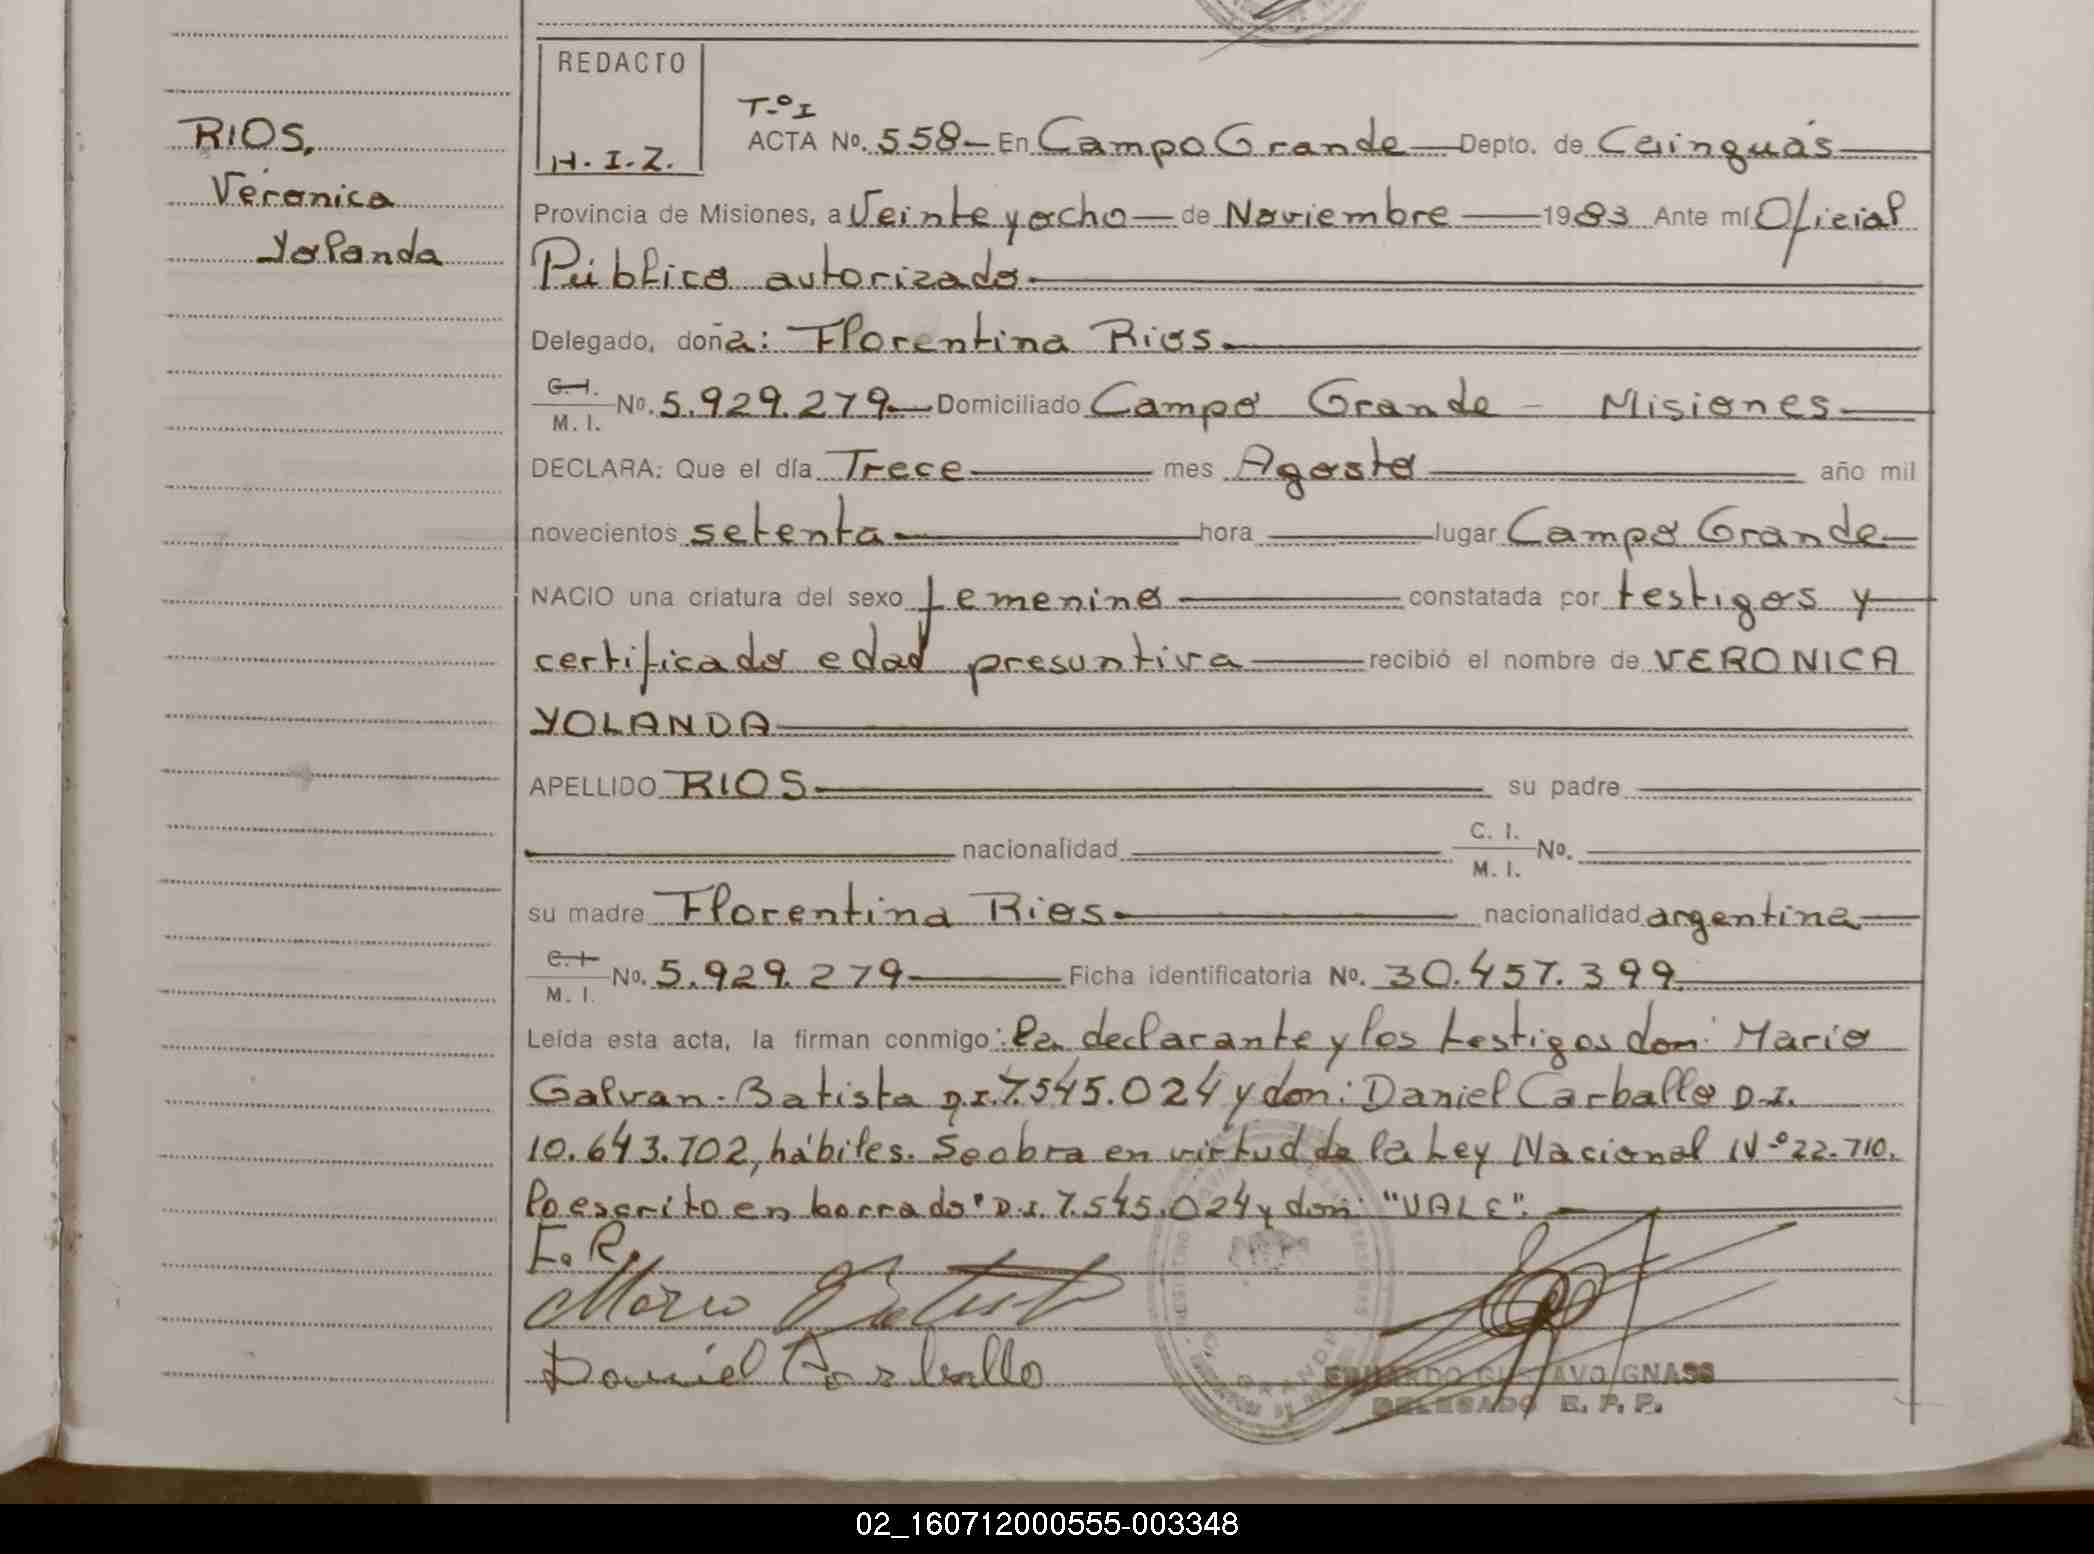 RIOS,
Verónica
Yolanda
REDACTO
H. I. Z.
T-º I
ACTA Nº. 558 En Campo Grande Depto. de Cainguás
Provincia de Misiones, a Veinte y ocho de Noviembre 1983 Ante mí Oficial
Público autorizado
Delegado, doña: Florentina Rios.
C. I.
M. I. Nº. 5.929.279 Domiciliado Campo Grande - Misiones
DECLARA: Que el día Trece mes Agosto año mil
novecientos setenta hora lugar Campo Grande
NACIO una criatura del sexo femenino constatada por testigos y
certificado edad presuntiva recibió el nombre de VERONICA
YOLANDA
APELLIDO RIOS su padre
nacionalidad C. I.
M. I. Nº.
su madre Florentina Rios. nacionalidad argentina
C. I.
M. I. Nº. 5.929.279 Ficha identificatoria Nº. 30.457.399
Leída esta acta, la firman conmigo: la declarante y los testigos don: Mario
Galvan-Batista D.I. 7.545.024 y don: Daniel Carballo D.I.
10.643.702, hábiles. Se obra en virtud de la Ley Nacional Nº 22.710.
Lo escrito en borrado "D.I. 7.545.024 y don: "VALE".
F. R.
Mario Batista
Daniel Carballo
EDUARDO GUSTAVO GNASS
DELEGADO R. P. P.
02_160712000555-003348